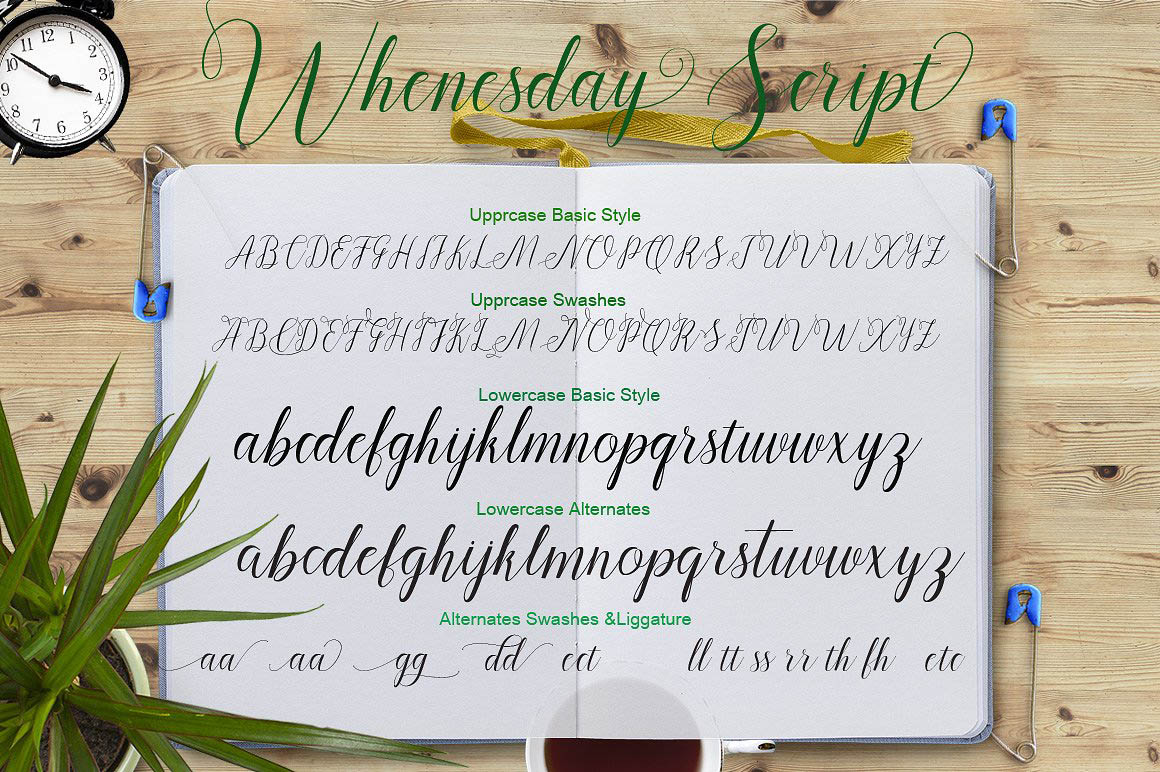 Whenesday Script
12 1 2 3 4 5 6 7 8 9 10 11
Upprcase Basic Style
ABCDEFGHIJKLMNOPQRSTUVWXYZ
Upprcase Swashes
ABCDEFGHIJKLMNOPQRSTUVWXYZ
Lowercase Basic Style
abcdefghijklmnopqrstuvwxyz
Lowercase Alternates
abcdefghijklmnopqrstuvwxyz
Alternates Swashes &Liggature
aa aa gg dd ect ll tt ss rr th fh etc